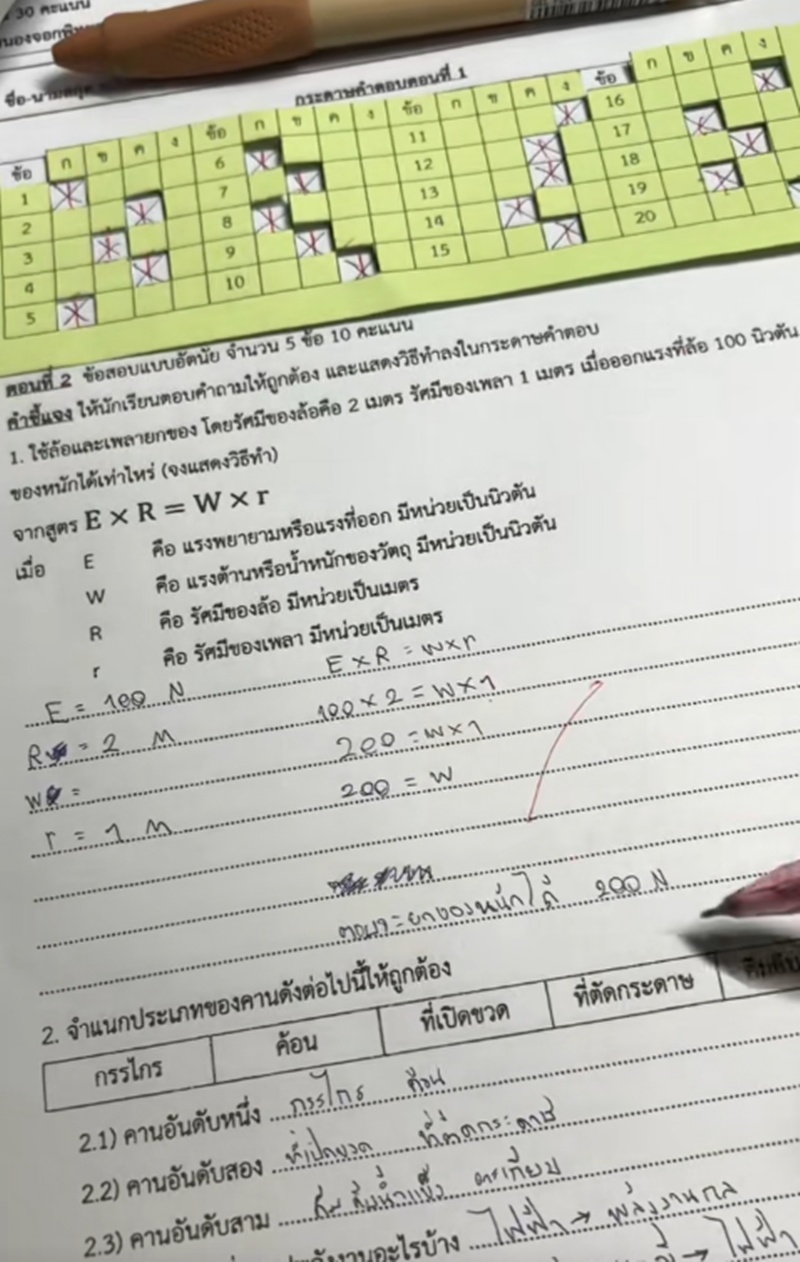 30 คะแนน
กระดาษคำตอบตอนที่ 1
ข้อ ก ข ค ง ข้อ ก ข ค ง ข้อ ก ข ค ง ข้อ ก ข ค ง
1 6 11 16
2 7 12 17
3 8 13 18
4 9 14 19
5 10 15 20
ตอนที่ 2 ข้อสอบแบบอัตนัย จำนวน 5 ข้อ 10 คะแนน
คำชี้แจง ให้นักเรียนตอบคำถามให้ถูกต้อง และแสดงวิธีทำลงในกระดาษคำตอบ
1. ใช้ล้อและเพลายกของ โดยรัศมีของล้อคือ 2 เมตร รัศมีของเพลา 1 เมตร เมื่อออกแรงที่ล้อ 100 นิวตัน
ของหนักได้เท่าไหร่ (จงแสดงวิธีทำ)
จากสูตร E × R = W × r
เมื่อ E คือ แรงพยายามหรือแรงที่ออก มีหน่วยเป็นนิวตัน
W คือ แรงต้านหรือน้ำหนักของวัตถุ มีหน่วยเป็นนิวตัน
R คือ รัศมีของล้อ มีหน่วยเป็นเมตร
r คือ รัศมีของเพลา มีหน่วยเป็นเมตร
E = 100 N E × R = W × r
R = 2 M 100 × 2 = W × 1
W = 200 = W × 1
r = 1 M 200 = W
ยกของหนักได้ 200 N
2. จำแนกประเภทของคานดังต่อไปนี้ให้ถูกต้อง
กรรไกร ค้อน ที่เปิดขวด ที่ตัดกระดาษ
2.1) คานอันดับหนึ่ง กรรไกร ค้อน
2.2) คานอันดับสอง ที่เปิดขวด ที่ตัดกระดาษ
2.3) คานอันดับสาม คีมคีบน้ำแข็ง ตะเกียบ
งานอะไรบ้าง ไฟฟ้า → พลังงานกล
→ ไฟฟ้า